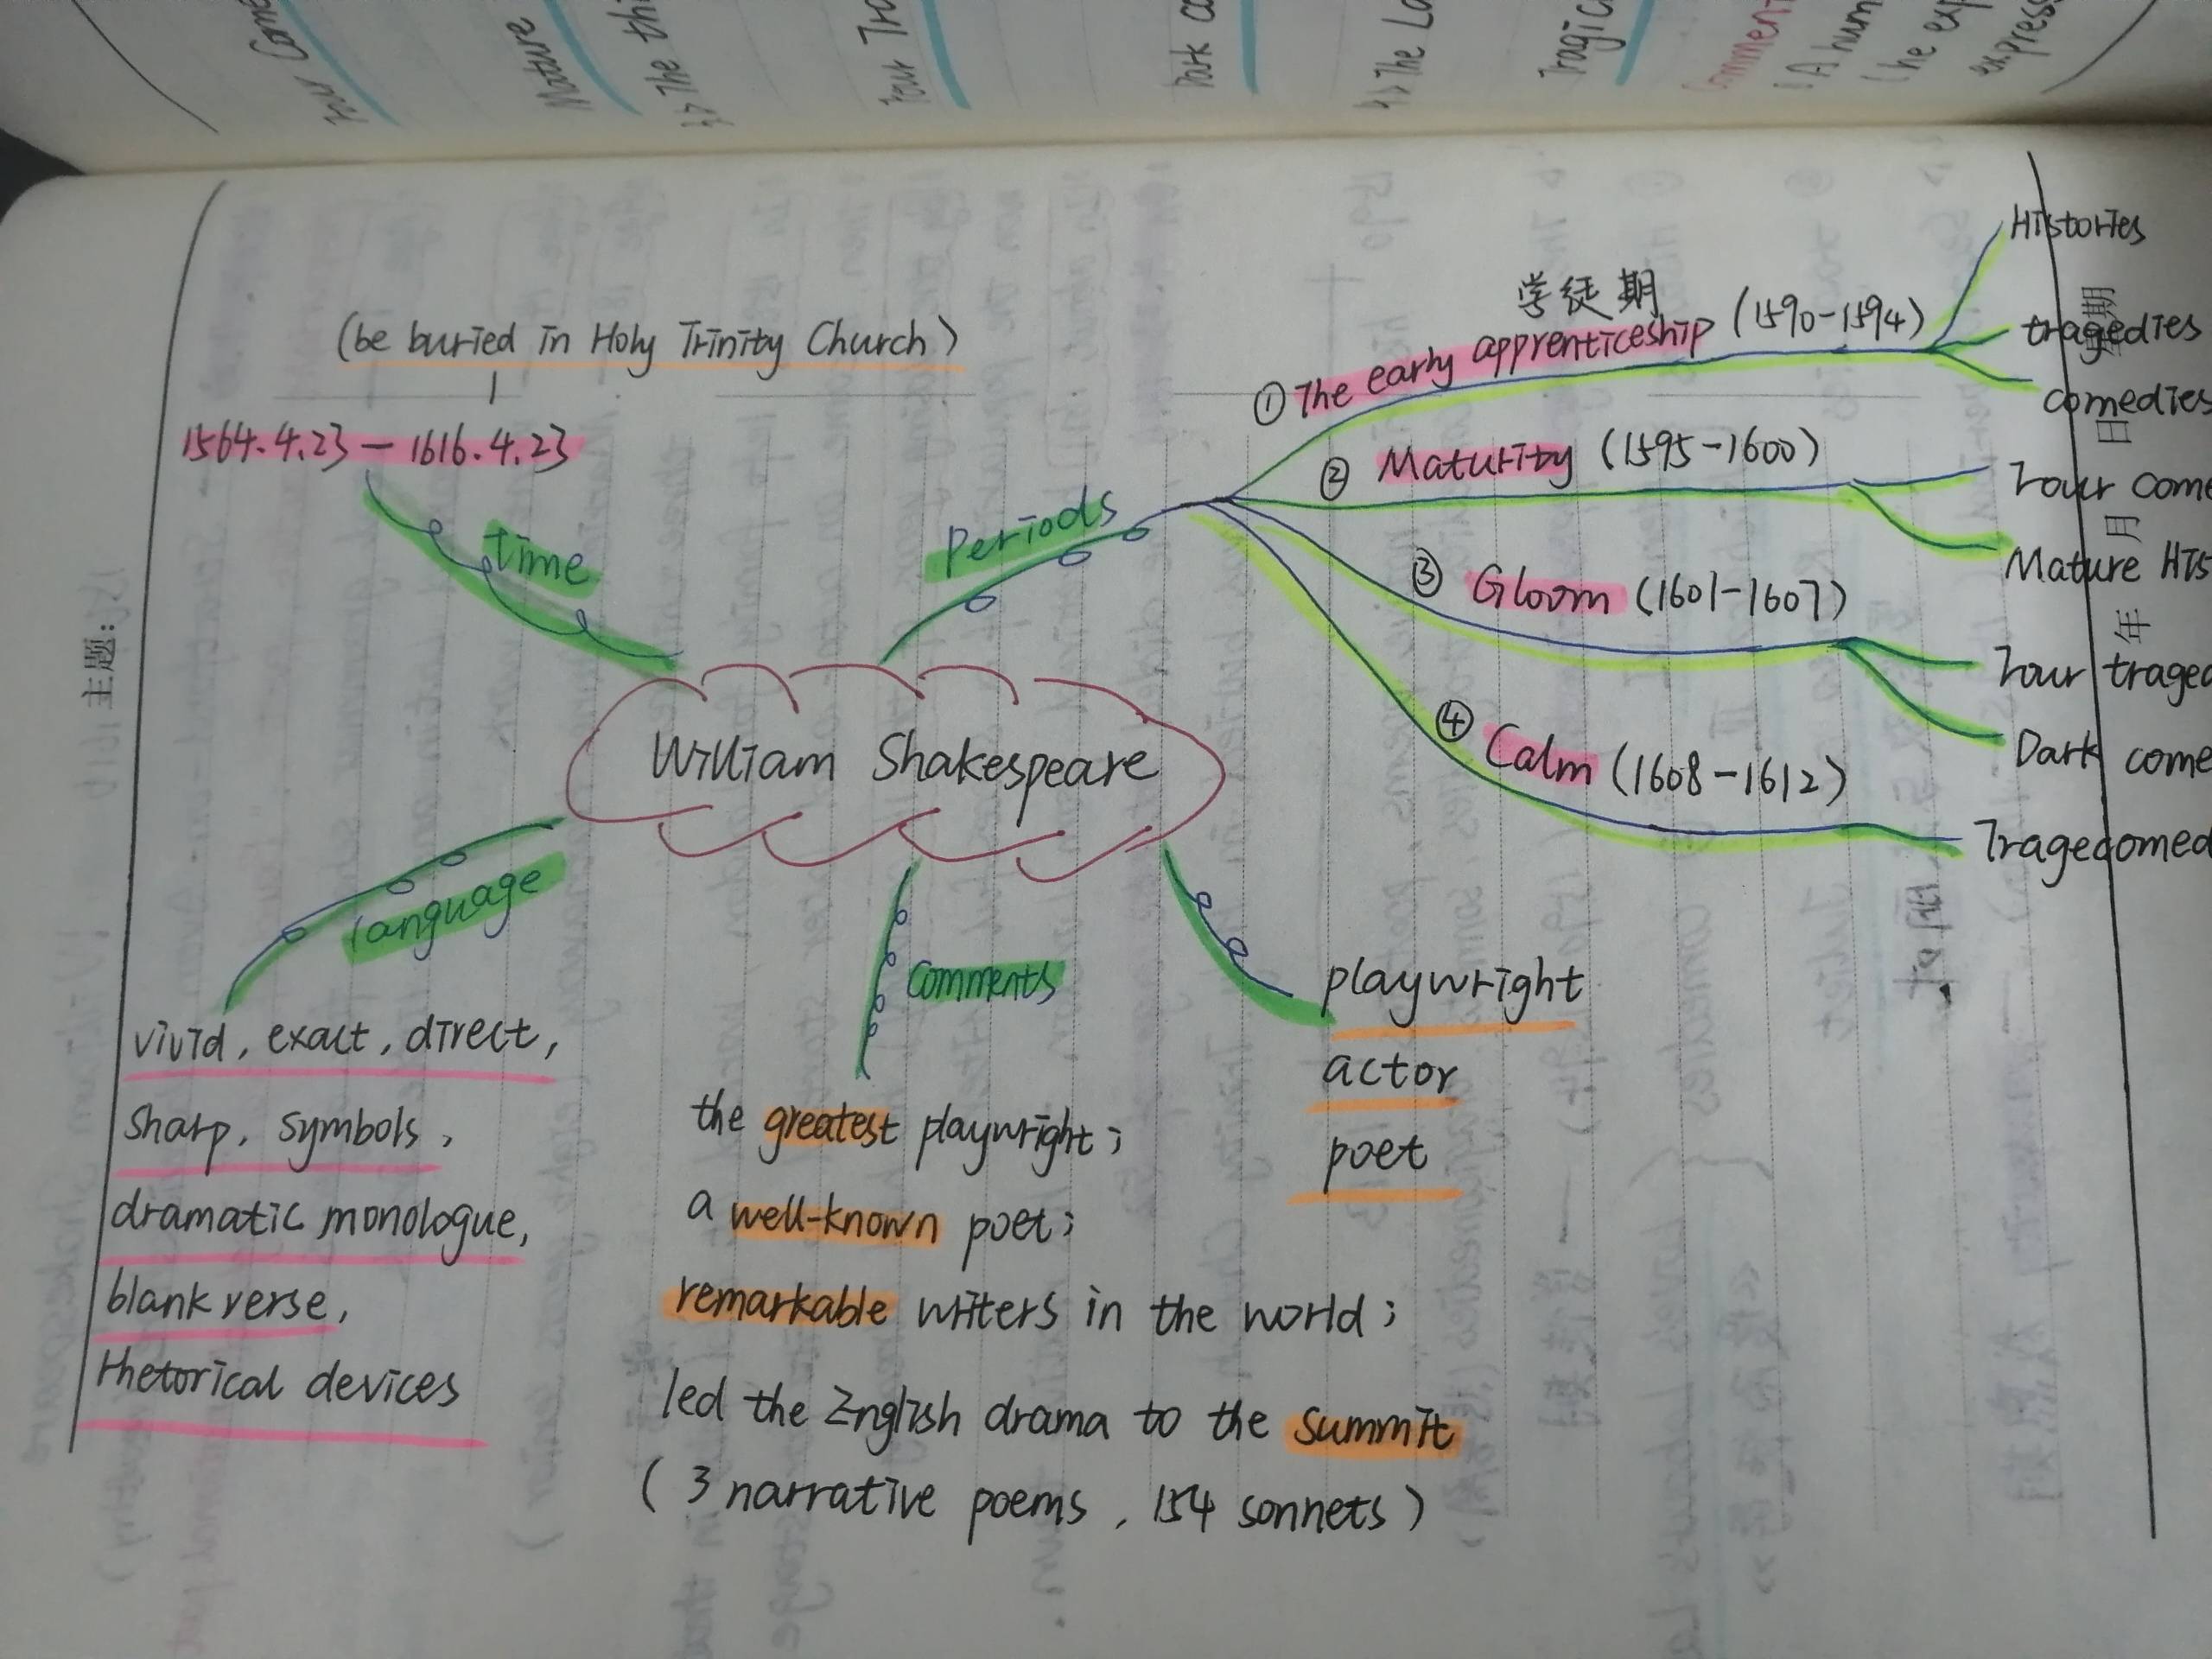 (be buried in Holy Trinity Church)
1564.4.23 — 1616.4.23
time
Periods
学徒期
① The early apprenticeship (1590-1594)
Histories
tragedies
comedies
② Maturity (1595-1600)
Four come
Mature His
③ Gloom (1601-1607)
Four traged
Dark come
④ Calm (1608-1612)
Tragecomed
William Shakespeare
language
vivid, exact, direct,
sharp, symbols,
dramatic monologue,
blank verse,
rhetorical devices
comments
the greatest playwright;
a well-known poet;
remarkable writers in the world;
led the English drama to the summit
(3 narrative poems, 154 sonnets)
playwright
actor
poet
主题:
星期
日
月
年
Mature
The
Dark
4> The
Comment